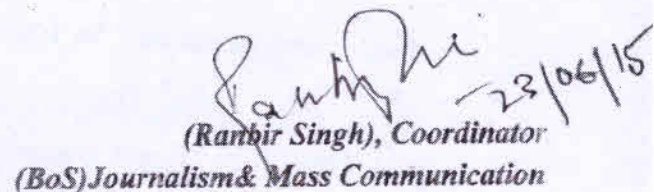 23/06/15
(Ranbir Singh), Coordinator
(BoS)Journalism& Mass Communication